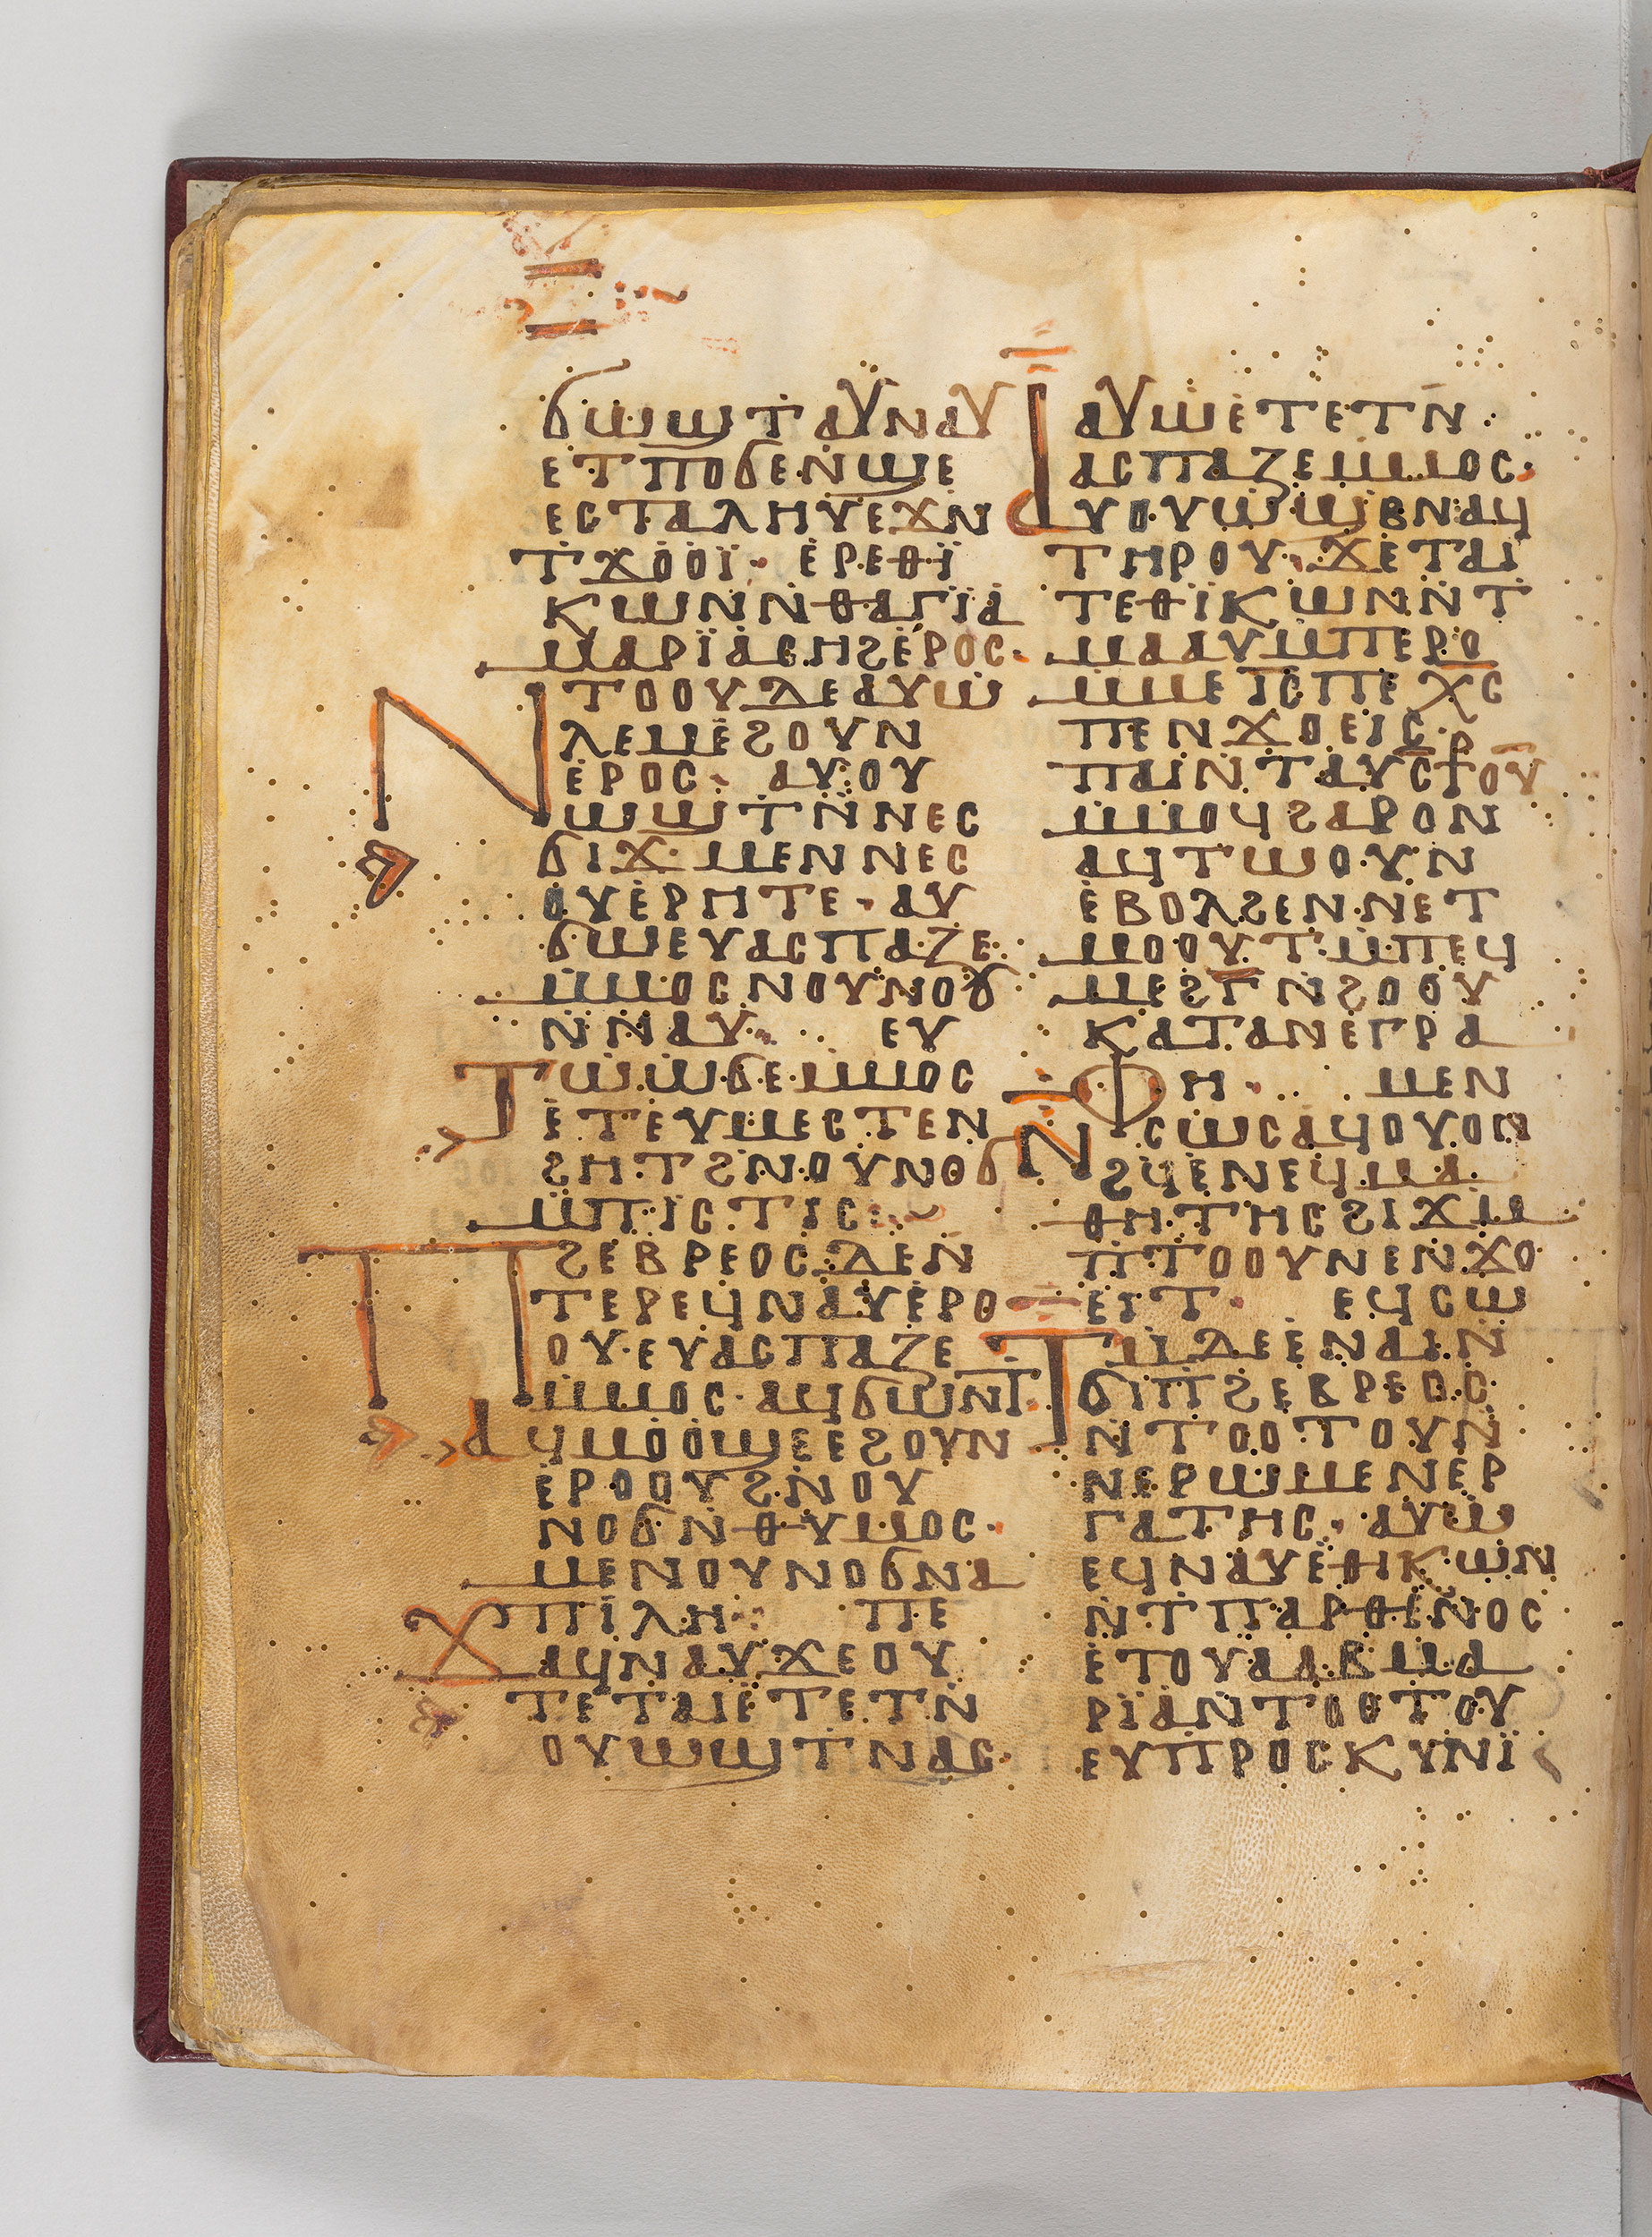 ϭⲱϣⲧⲁⲩⲛⲁⲩ
ⲉⲧⲡⲟϭⲉⲛϣⲉ
ⲉⲥⲧⲁⲗⲏⲩⲉϫⲛ
ⲧϫⲟⲟⲓ· ⲉⲣⲉⲑⲓ
ⲕⲱⲛⲛⲑⲁⲅⲓⲁ
ⲙⲁⲣⲓⲁⲥⲏϩⲉⲣⲟⲥ·
ⲛⲧⲟⲟⲩⲇⲉⲁⲩⲱ
ⲗⲉⲙⲉϩⲟⲩⲛ
ⲉⲣⲟⲥ· ⲁⲩⲟⲩ
ⲱϣⲧⲛⲛⲉⲥ
ϭⲓϫ· ⲙⲉⲛⲛⲉⲥ
ⲟⲩⲉⲣⲏⲧⲉ· ⲁⲩ
ϭⲱⲉⲩⲁⲥⲡⲁⲍⲉ
ⲙⲙⲟⲥⲛⲟⲩⲛⲟϭ
ⲛⲛⲁⲩ· ⲉⲩ
ⲧⲱⲱϭⲉⲙⲙⲟⲥ
ⲉⲧⲉⲩⲙⲉⲥⲧⲉⲛ
ϩⲏⲧϩⲛⲟⲩⲛⲟϭ
ⲙⲡⲓⲥⲧⲓⲥ:
ⲡϩⲉⲃⲣⲉⲟⲥⲇⲉⲛ
ⲧⲉⲣⲉϥⲛⲁⲩⲉⲣⲟ
ⲟⲩ·ⲉⲩⲁⲥⲡⲁⲍⲉ
ⲙⲙⲟⲥ·ⲁϥϭⲱⲛⲧ·
ⲁϥⲙⲟⲟϣⲉⲉϩⲟⲩⲛ
ⲉⲣⲟⲟⲩϩⲛⲟⲩ
ⲛⲟϭⲛⲑⲩⲙⲟⲥ·
ⲙⲉⲛⲟⲩⲛⲟϭⲛⲁ
ⲡⲓⲗⲏ· ⲡⲉ
ϫⲁϥⲛⲁⲩϫⲉⲟⲩ
ⲧⲉⲧⲁⲓⲉⲧⲉⲧⲛ
ⲟⲩⲱϣⲧⲛⲁⲥ·
ⲁⲩⲱⲉⲧⲉⲧⲛ
ⲁⲥⲡⲁⲍⲉⲙⲙⲟⲥ·
ⲁⲩⲟⲩⲱϣⲃⲛⲁϥ
ⲧⲏⲣⲟⲩ· ϫⲉⲧⲁⲓ
ⲧⲉⲑⲓⲕⲱⲛⲛⲧ
ⲙⲁⲁⲩⲙⲡⲉⲣⲟ
ⲙⲙⲉⲓⲥⲡⲉⲭⲥ
ⲡⲉⲛϫⲟⲉⲓⲥ·
ⲡⲁⲓⲛⲧⲁⲩⲥⳁⲟⲩ
ⲙⲙⲟϥϩⲁⲣⲟⲛ
ⲁϥⲧⲱⲟⲩⲛ
ⲉⲃⲟⲗϩⲉⲛⲛⲉⲧ
ⲙⲟⲟⲩⲧ·ⲙⲡⲉϥ
ⲙⲉϩⲅⲛϩⲟⲟⲩ
ⲕⲁⲧⲁⲛⲉⲅⲣⲁ
ⲫⲏ· ⲙⲉⲛ
ⲛⲥⲱⲥⲁϥⲟⲩⲟⲛ
ϩϥⲉⲛⲉϥⲙⲁ
ⲑⲏⲧⲏⲥϩⲓϫⲙ
ⲡⲧⲟⲟⲩⲛⲉⲛϫⲟ
ⲉⲓⲧ· ⲉϥⲥⲱ
ⲧⲙⲇⲉⲉⲛⲁⲓⲛ
ϭⲓⲡϩⲉⲃⲣⲉⲟⲥ
ⲛⲧⲟⲟⲧⲟⲩⲛ
ⲛⲉⲣⲱⲙⲉⲛⲉⲣ
ⲅⲁⲧⲏⲥ· ⲁⲩⲱ
ⲉϥⲛⲁⲩⲉⲑⲏⲕⲱⲛ
ⲛⲧⲡⲁⲣⲑⲉⲛⲟⲥ
ⲉⲧⲟⲩⲁⲁⲃⲙⲁ
ⲣⲓⲁⲛⲧⲟⲟⲧⲟⲩ
ⲉⲩⲡⲣⲟⲥⲕⲩⲛⲓ